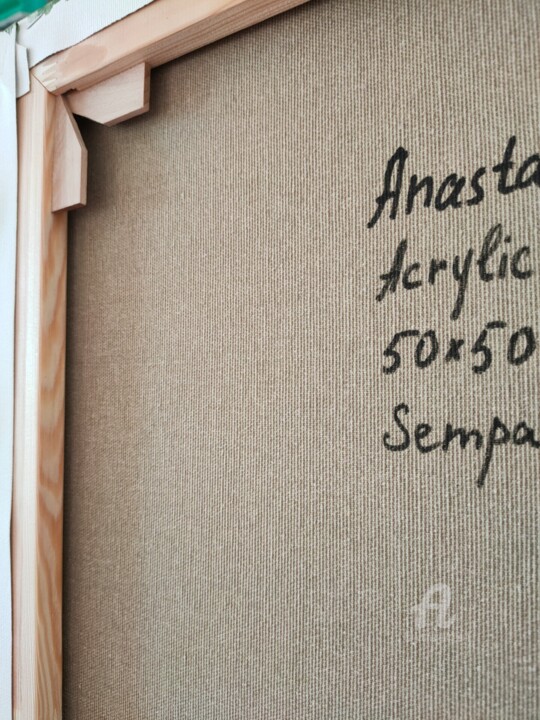 Anasta
Acrylic
50x50
Sempa
A